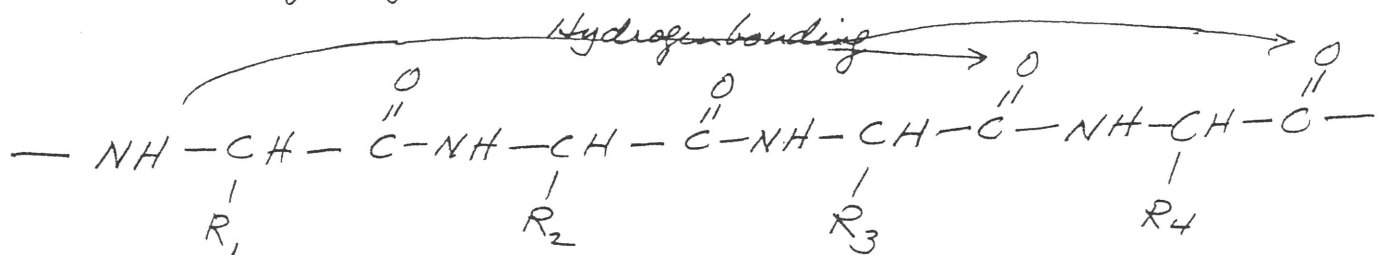 Hydrogen bonding
O O O O
— NH — CH — C — NH — CH — C — NH — CH — C — NH — CH — C —
R1 R2 R3 R4